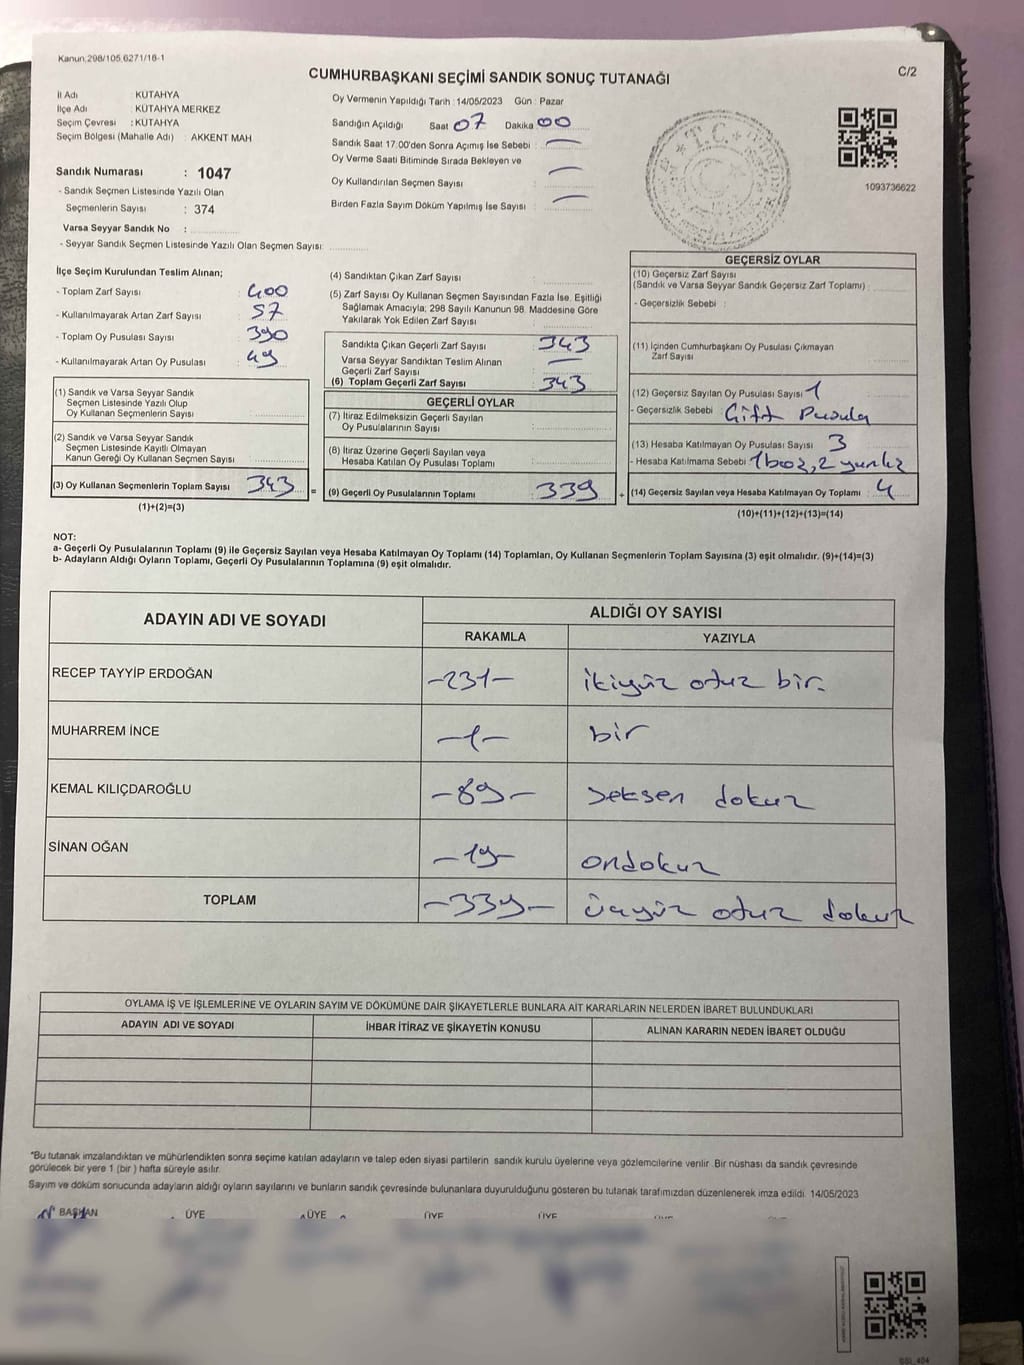 Kanun:298/105,6271/16-1
C/2
CUMHURBAŞKANI SEÇİMİ SANDIK SONUÇ TUTANAĞI
İl Adı : KÜTAHYA
İlçe Adı : KÜTAHYA MERKEZ
Seçim Çevresi : KÜTAHYA
Seçim Bölgesi (Mahalle Adı) : AKKENT MAH
Sandık Numarası : 1047
- Sandık Seçmen Listesinde Yazılı Olan
Seçmenlerin Sayısı : 374
Varsa Seyyar Sandık No :
- Seyyar Sandık Seçmen Listesinde Yazılı Olan Seçmen Sayısı:
Oy Vermenin Yapıldığı Tarih : 14/05/2023 Gün : Pazar
Sandığın Açıldığı Saat 07 Dakika 00
Sandık Saat 17.00'den Sonra Açımış İse Sebebi : —
Oy Verme Saati Bitiminde Sırada Bekleyen ve
Oy Kullandırılan Seçmen Sayısı : —
Birden Fazla Sayım Döküm Yapılmış İse Sayısı : —
T.C.
1093736622
İlçe Seçim Kurulundan Teslim Alınan;
- Toplam Zarf Sayısı : 400
- Kullanılmayarak Artan Zarf Sayısı : 57
- Toplam Oy Pusulası Sayısı : 390
- Kullanılmayarak Artan Oy Pusulası : 49
(1) Sandık ve Varsa Seyyar Sandık
Seçmen Listesinde Yazılı Olup
Oy Kullanan Seçmenlerin Sayısı
(2) Sandık ve Varsa Seyyar Sandık
Seçmen Listesinde Kayıtlı Olmayan
Kanun Gereği Oy Kullanan Seçmen Sayısı
(3) Oy Kullanan Seçmenlerin Toplam Sayısı 343 =
(1)+(2)=(3)
(4) Sandıktan Çıkan Zarf Sayısı
(5) Zarf Sayısı Oy Kullanan Seçmen Sayısından Fazla İse, Eşitliği
Sağlamak Amacıyla, 298 Sayılı Kanunun 98. Maddesine Göre
Yakılarak Yok Edilen Zarf Sayısı
Sandıkta Çıkan Geçerli Zarf Sayısı : 343
Varsa Seyyar Sandıktan Teslim Alınan
Geçerli Zarf Sayısı : —
(6) Toplam Geçerli Zarf Sayısı : 343
GEÇERLİ OYLAR
(7) İtiraz Edilmeksizin Geçerli Sayılan
Oy Pusulalarının Sayısı
(8) İtiraz Üzerine Geçerli Sayılan veya
Hesaba Katılan Oy Pusulası Toplamı
(9) Geçerli Oy Pusulalarının Toplamı 339 +
GEÇERSİZ OYLAR
(10) Geçersiz Zarf Sayısı
(Sandık ve Varsa Seyyar Sandık Geçersiz Zarf Toplamı) :
- Geçersizlik Sebebi :
(11) İçinden Cumhurbaşkanı Oy Pusulası Çıkmayan
Zarf Sayısı
(12) Geçersiz Sayılan Oy Pusulası Sayısı 1
- Geçersizlik Sebebi Çift Pusula
(13) Hesaba Katılmayan Oy Pusulası Sayısı 3
- Hesaba Katılmama Sebebi 1 boş, 2
(14) Geçersiz Sayılan veya Hesaba Katılmayan Oy Toplamı : 4
(10)+(11)+(12)+(13)=(14)
NOT:
a- Geçerli Oy Pusulalarının Toplamı (9) ile Geçersiz Sayılan veya Hesaba Katılmayan Oy Toplamı (14) Toplamları, Oy Kullanan Seçmenlerin Toplam Sayısına (3) eşit olmalıdır. (9)+(14)=(3)
b- Adayların Aldığı Oyların Toplamı, Geçerli Oy Pusulalarının Toplamına (9) eşit olmalıdır.
ADAYIN ADI VE SOYADI
ALDIĞI OY SAYISI
RAKAMLA YAZIYLA
RECEP TAYYİP ERDOĞAN -231- ikiyüz otuz bir.
MUHARREM İNCE -1- bir
KEMAL KILIÇDAROĞLU -89- seksen dokuz
SİNAN OĞAN -19- ondokuz
TOPLAM -339- üçyüz otuz dokuz
OYLAMA İŞ VE İŞLEMLERİNE VE OYLARIN SAYIM VE DÖKÜMÜNE DAİR ŞİKAYETLERLE BUNLARA AİT KARARLARIN NELERDEN İBARET BULUNDUKLARI
ADAYIN ADI VE SOYADI İHBAR İTİRAZ VE ŞİKAYETİN KONUSU ALINAN KARARIN NEDEN İBARET OLDUĞU
*Bu tutanak imzalandıktan ve mühürlendikten sonra seçime katılan adayların ve talep eden siyasi partilerin sandık kurulu üyelerine veya gözlemcilerine verilir. Bir nüshası da sandık çevresinde
görülecek bir yere 1 (bir) hafta süreyle asılır.
Sayım ve döküm sonucunda adayların aldığı oyların sayılarını ve bunların sandık çevresinde bulunanlara duyurulduğunu gösteren bu tutanak tarafımızdan düzenlenerek imza edildi. 14/05/2023
BAŞKAN ÜYE ÜYE ÜYE ÜYE